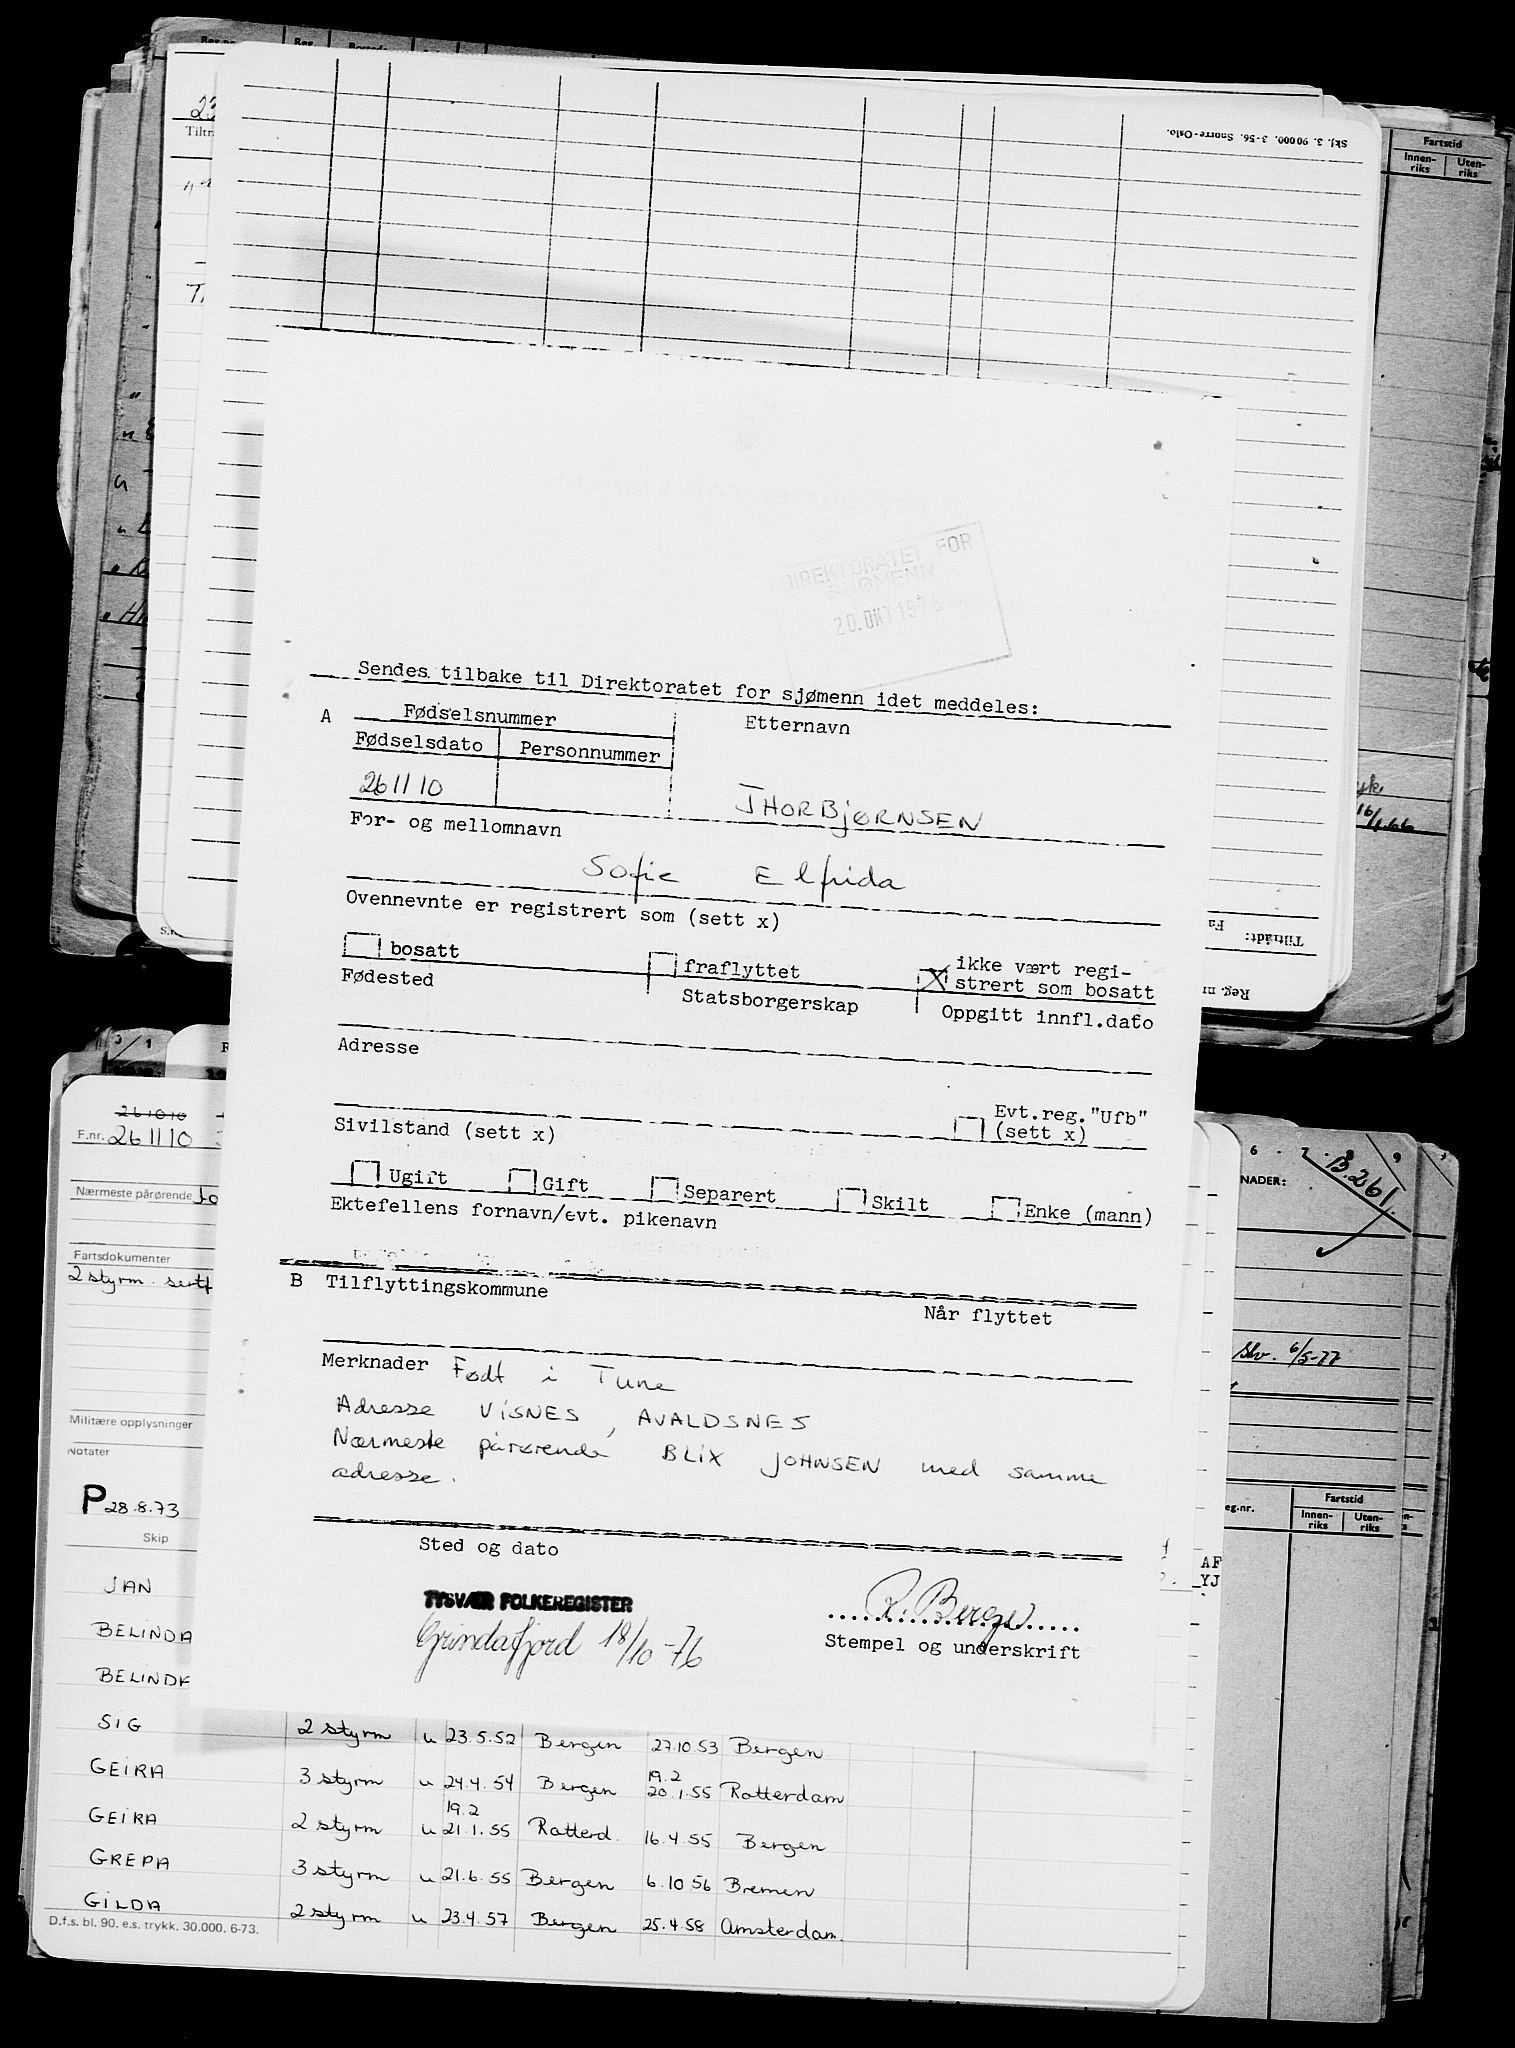 Skj. 3. 90000. 3-56. Snorre-Oslo.
Fartstid
Innen-
riks
Uten-
riks
DIREKTORATET FOR
SJØMENN
20. OKT 1976
Sendes tilbake til Direktoratet for sjømenn idet meddeles:
A
Fødselsnummer
Etternavn
Fødselsdato
Personnummer
261110
THORBJØRNSEN
For- og mellomnavn
Sofie Elfrida
Ovennevnte er registrert som (sett x)
bosatt
fraflyttet
X ikke vært regi-
strert som bosatt
Fødested
Statsborgerskap
Oppgitt innfl.dato
Adresse
Evt.reg."Ufb"
(sett x)
Sivilstand (sett x)
Ugift
Gift
Separert
Skilt
Enke (mann)
Ektefellens fornavn/evt. pikenavn
B Tilflyttingskommune
Når flyttet
Merknader Født i Tune
Adresse VISNES, AVALDSNES
Nærmeste pårørende BLIX JOHNSEN med samme
adresse.
Sted og dato
TYSVÆR FOLKEREGISTER
Grindafjord 18/10-76
R. Berge
Stempel og underskrift
Tiltrådt:
Reg. nr
16/1.66
261010
F.nr. 261110
Nærmeste pårørende
Fartsdokumenter
2 styrm. sertf
Militære opplysninger
Notater
P 28.8.73
Skip
JAN
BELINDA
BELINDA
SIG 2 styrm u 23.5.52 Bergen 27.10.53 Bergen
GEIRA 3 styrm u 24.4.54 Bergen 19.2 20.1.55 Rotterdam
GEIRA 2 styrm u 19.2 21.1.55 Rotterd. 16.4.55 Bergen
GREPA 3 styrm u 21.6.55 Bergen 6.10.56 Bremen
GILDA 2 styrm u 23.4.57 Bergen 25.4.58 Amsterdam
D.f.s. bl. 90. e.s. trykk. 30.000. 6-73.
NADER:
B.261.
Slv. 6/5-77
eg.nr.
Fartstid
Innen-
riks
Uten-
riks
AF
YJ